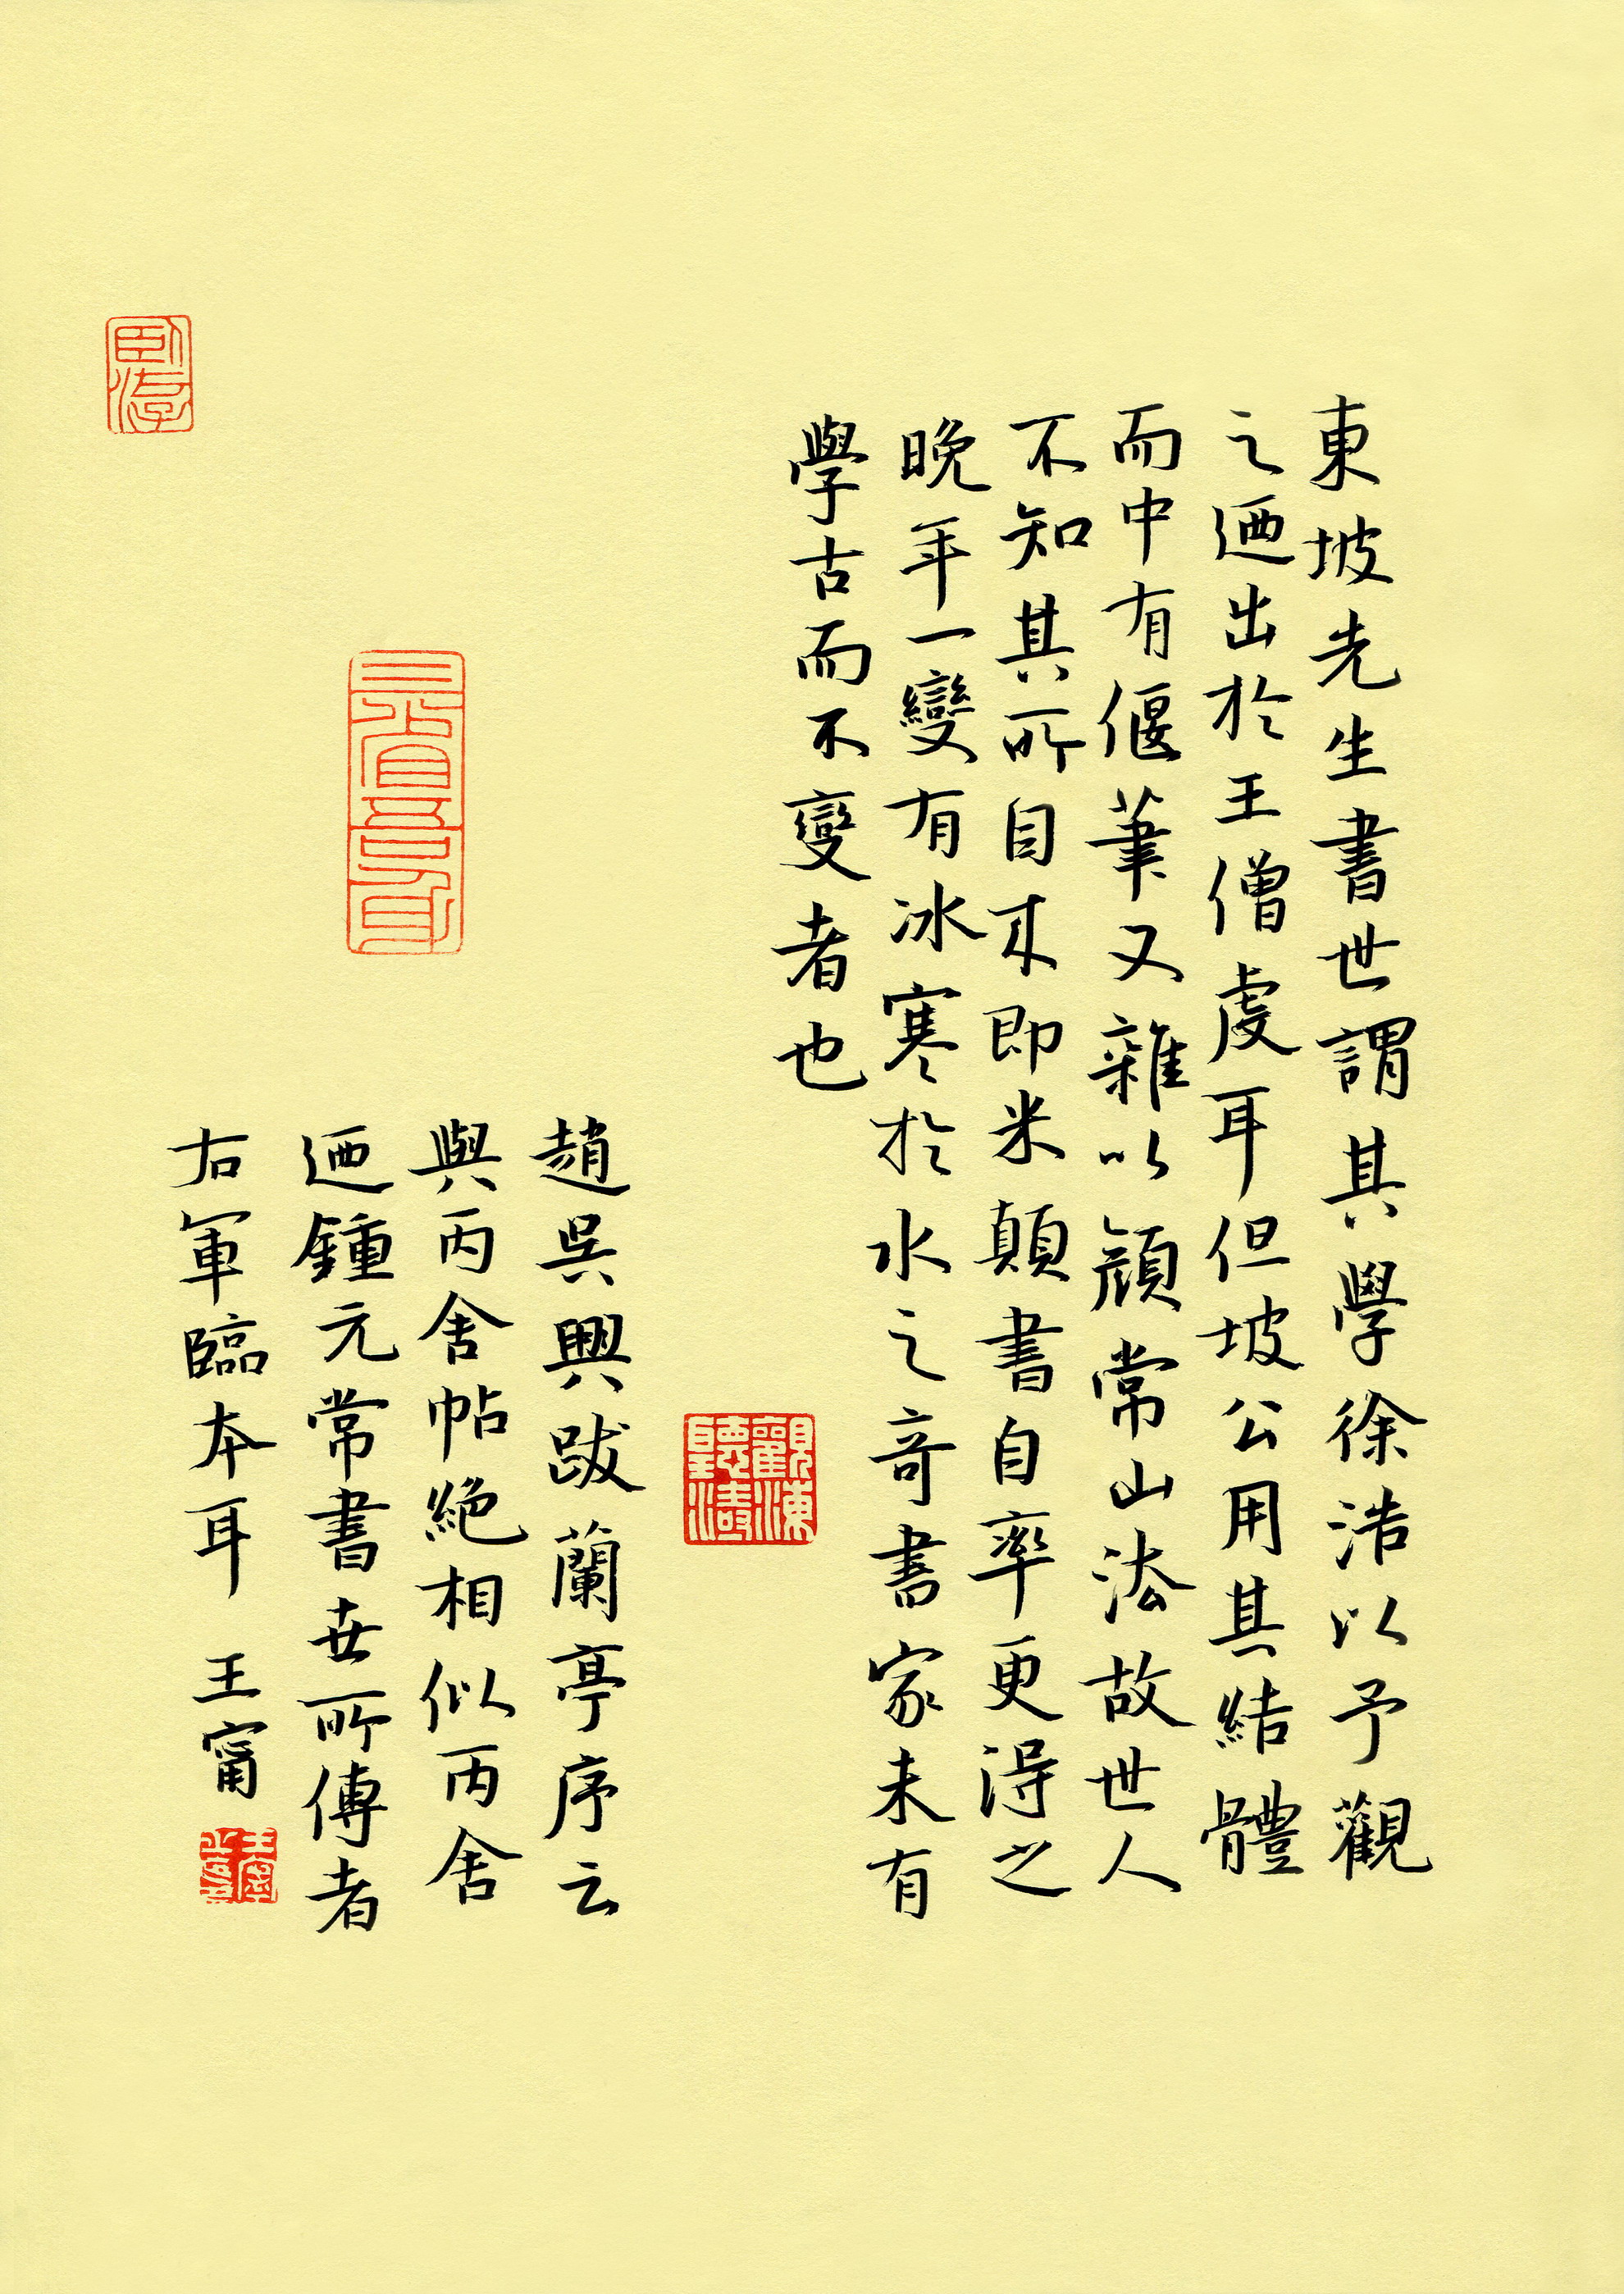 東坡先生書世謂其學徐浩以予觀
之迺出於王僧虔耳但坡公用其結體
而中有偃筆又雜以顏常山法故世人
不知其所自来即米顛書自率更得之
晚年一變有冰寒於水之奇書家未有
學古而不變者也
趙吳興跋蘭亭序云
與丙舍帖絕相似丙舍
迺鍾元常書世所傳者
右軍臨本耳 王甯
三省吾身